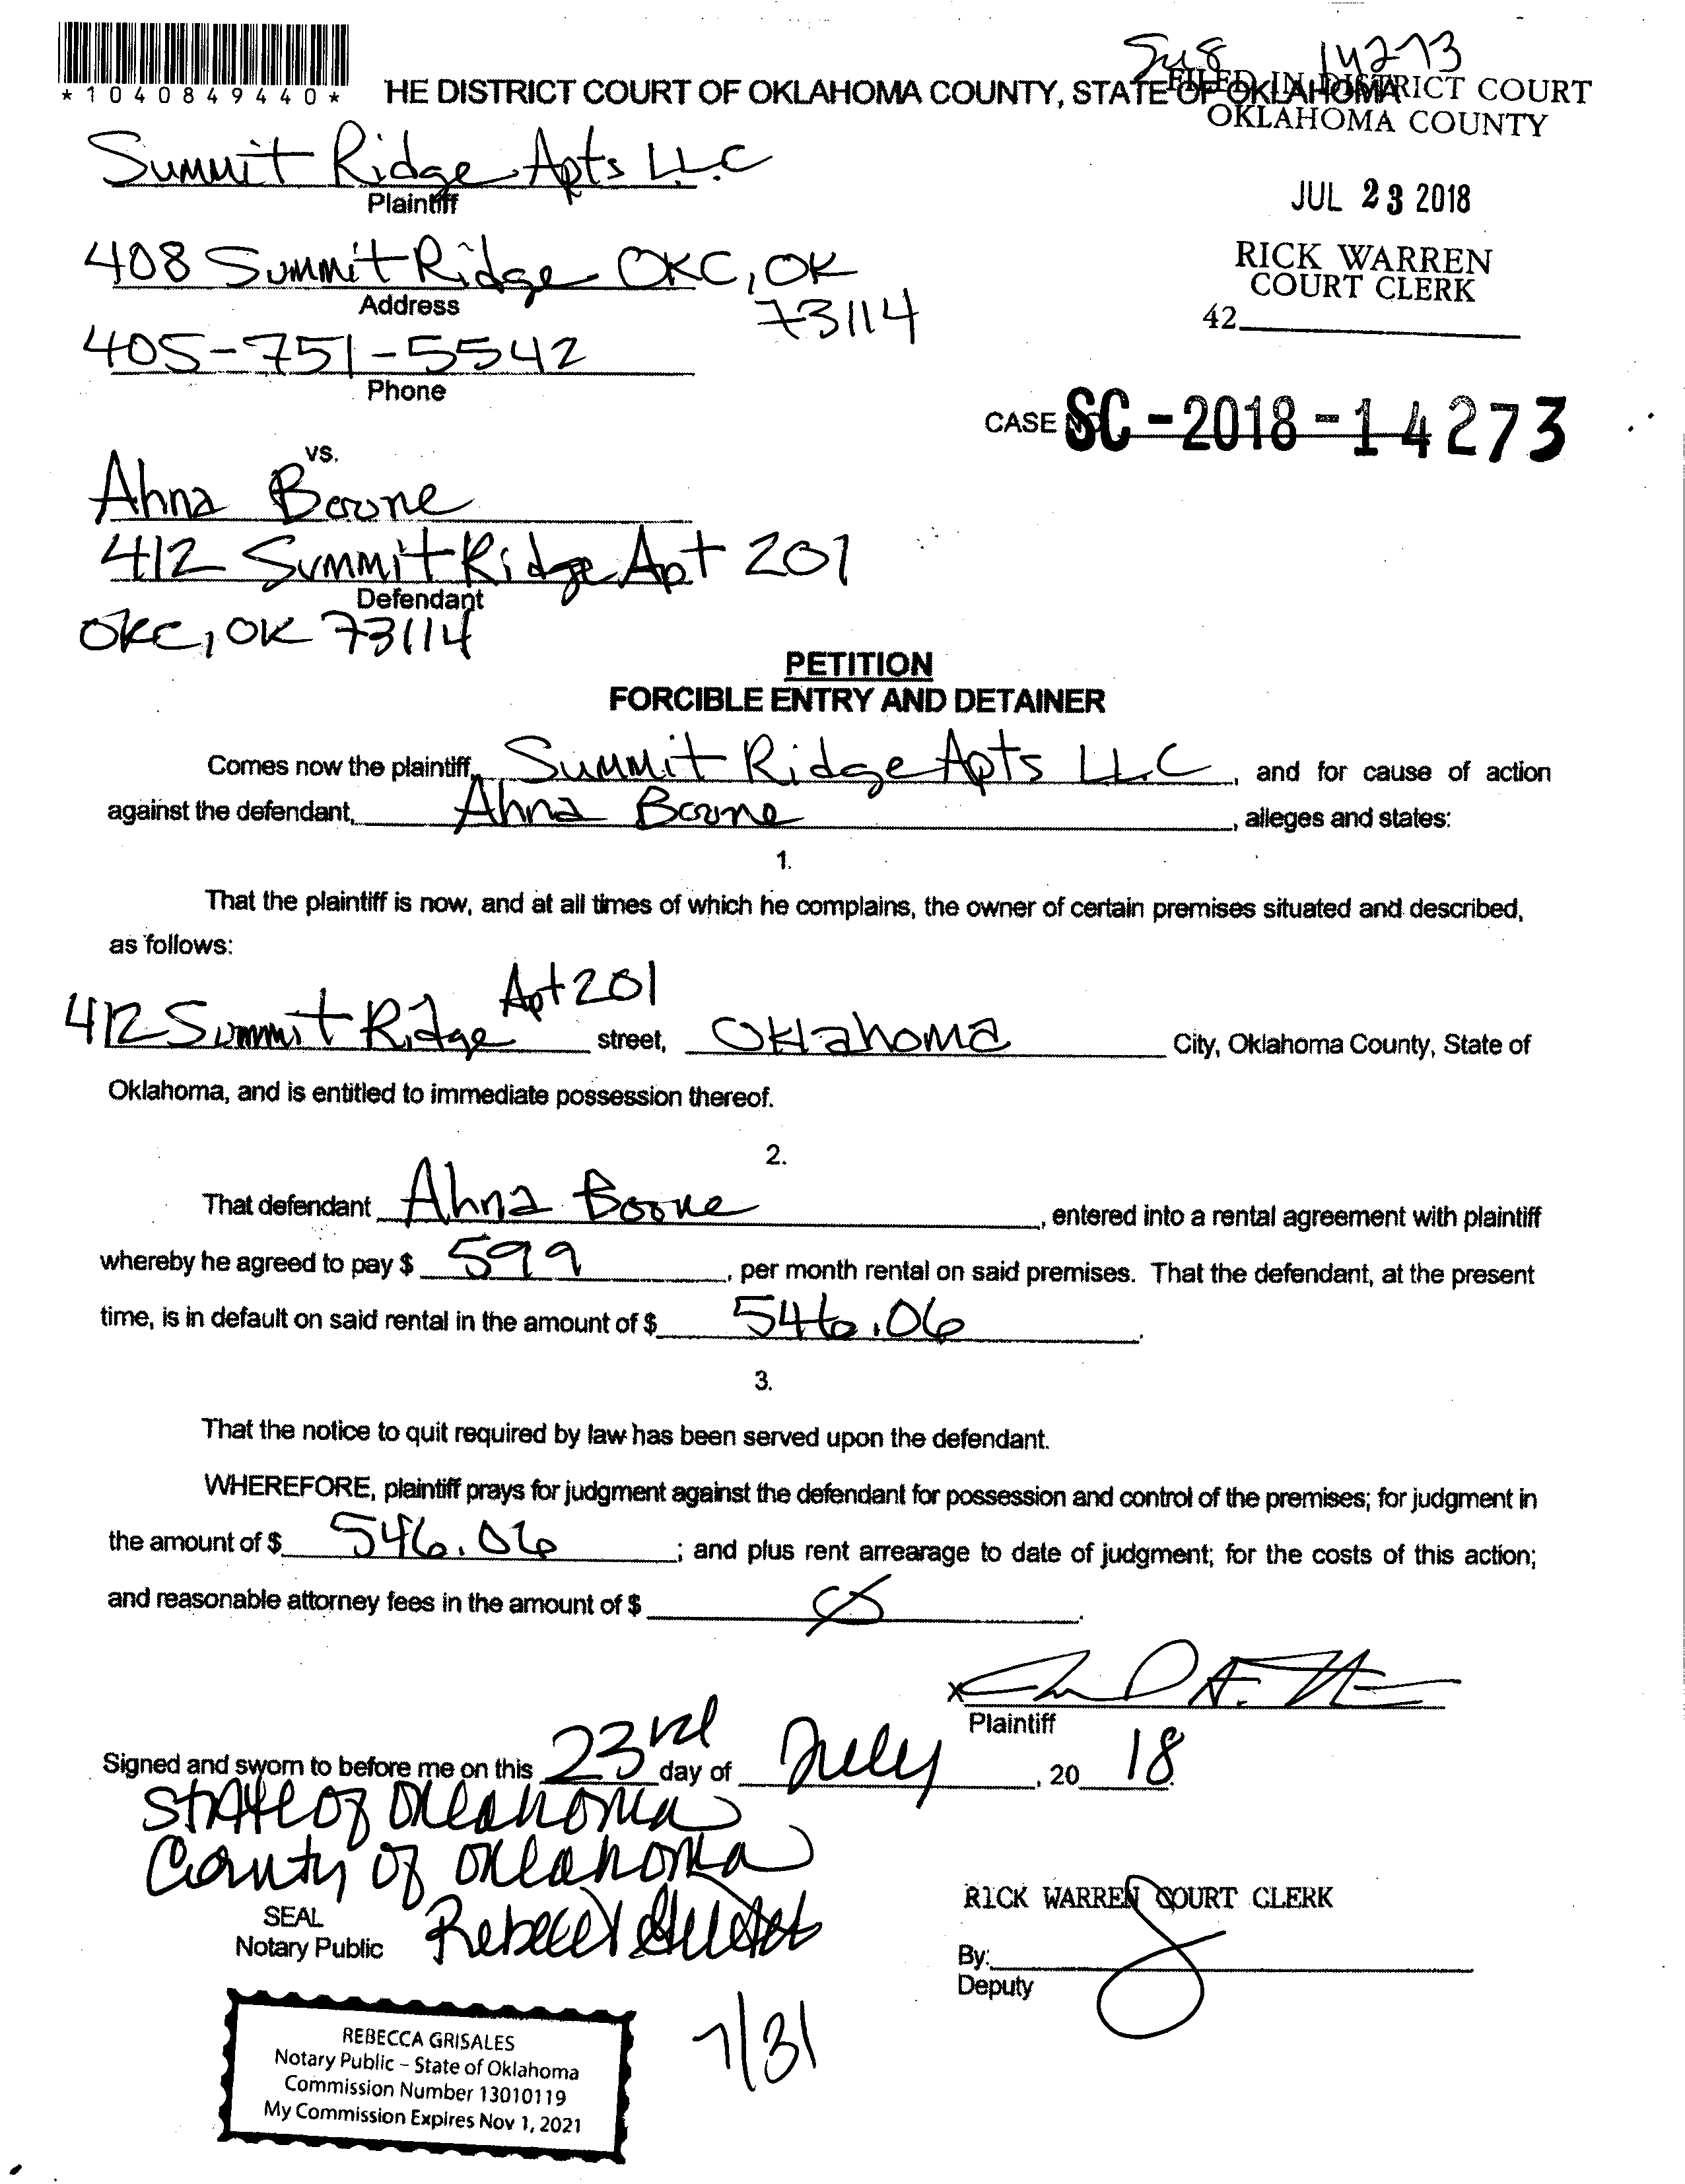 Su8 14273
*1040849440*
HE DISTRICT COURT OF OKLAHOMA COUNTY, STATE OF OKLAHOMA
FILED IN DISTRICT COURT
OKLAHOMA COUNTY
Summit Ridge Apts LLC
Plaintiff
JUL 23 2018
408 Summit Ridge OKC, OK
73114
Address
RICK WARREN
COURT CLERK
42
405-751-5542
Phone
CASE NO SC-2018-14273
vs.
Ahna Boone
412 Summit Ridge Apt 201
Defendant
OKC, OK 73114
PETITION
FORCIBLE ENTRY AND DETAINER
Comes now the plaintiff, Summit Ridge Apts LLC, and for cause of action
against the defendant, Ahna Boone, alleges and states:
1.
That the plaintiff is now, and at all times of which he complains, the owner of certain premises situated and described,
as follows:
412 Summit Ridge Apt 201 street, Oklahoma City, Oklahoma County, State of
Oklahoma, and is entitled to immediate possession thereof.
2.
That defendant Ahna Boone, entered into a rental agreement with plaintiff
whereby he agreed to pay $ 599, per month rental on said premises. That the defendant, at the present
time, is in default on said rental in the amount of $ 546.06.
3.
That the notice to quit required by law has been served upon the defendant.
WHEREFORE, plaintiff prays for judgment against the defendant for possession and control of the premises; for judgment in
the amount of $ 546.06; and plus rent arrearage to date of judgment; for the costs of this action;
and reasonable attorney fees in the amount of $ Ø.
x
Plaintiff
Signed and sworn to before me on this 23rd day of July, 20 18.
State of Oklahoma
County of Oklahoma
SEAL
Notary Public
RICK WARREN COURT CLERK
By:
Deputy
7/31
REBECCA GRISALES
Notary Public – State of Oklahoma
Commission Number 13010119
My Commission Expires Nov 1, 2021